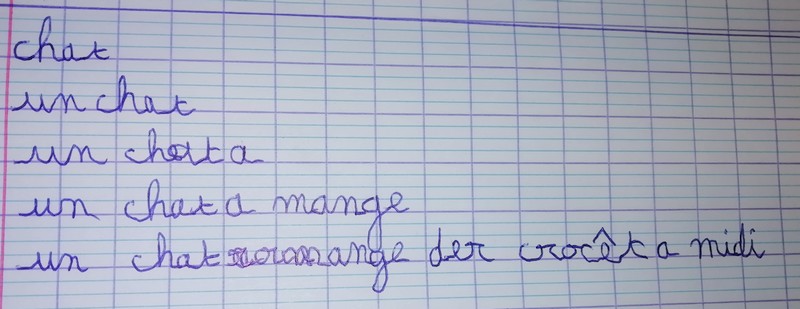 chat
un chat
un chat a
un chat a mange
un chat mange des crocêt a midi